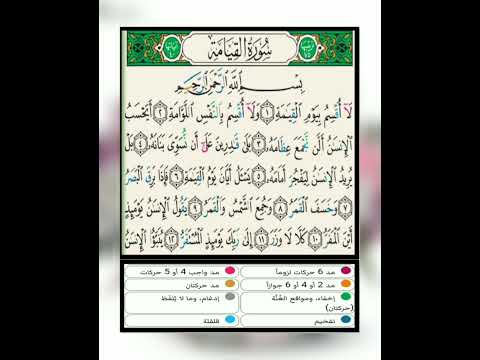 سُورَةُ القِيَامَةِ
بِسْمِ اللَّهِ الرَّحْمَٰنِ الرَّحِيمِ
لَآ أُقْسِمُ بِيَوْمِ ٱلْقِيَٰمَةِ ١ وَلَآ أُقْسِمُ بِٱلنَّفْسِ ٱللَّوَّامَةِ ٢ أَيَحْسَبُ
ٱلْإِنسَٰنُ أَلَّن نَّجْمَعَ عِظَامَهُۥ ٣ بَلَىٰ قَٰدِرِينَ عَلَىٰٓ أَن نُّسَوِّىَ بَنَانَهُۥ ٤ بَلْ
يُرِيدُ ٱلْإِنسَٰنُ لِيَفْجُرَ أَمَامَهُۥ ٥ يَسْـَٔلُ أَيَّانَ يَوْمُ ٱلْقِيَٰمَةِ ٦ فَإِذَا بَرِقَ ٱلْبَصَرُ
٧ وَخَسَفَ ٱلْقَمَرُ ٨ وَجُمِعَ ٱلشَّمْسُ وَٱلْقَمَرُ ٩ يَقُولُ ٱلْإِنسَٰنُ يَوْمَئِذٍ
أَيْنَ ٱلْمَفَرُّ ١٠ كَلَّا لَا وَزَرَ ١١ إِلَىٰ رَبِّكَ يَوْمَئِذٍ ٱلْمُسْتَقَرُّ ١٢ يُنَبَّؤُا۟ ٱلْإِنسَٰنُ
مد 6 حركات لزوماً
مد واجب 4 أو 5 حركات
مد 2 أو 4 أو 6 جوازاً
مد حركتان
إخفاء، ومواقع الغُنَّة (حركتان)
إدغام، وما لا يُلفَظ
تفخيم
قلقلة